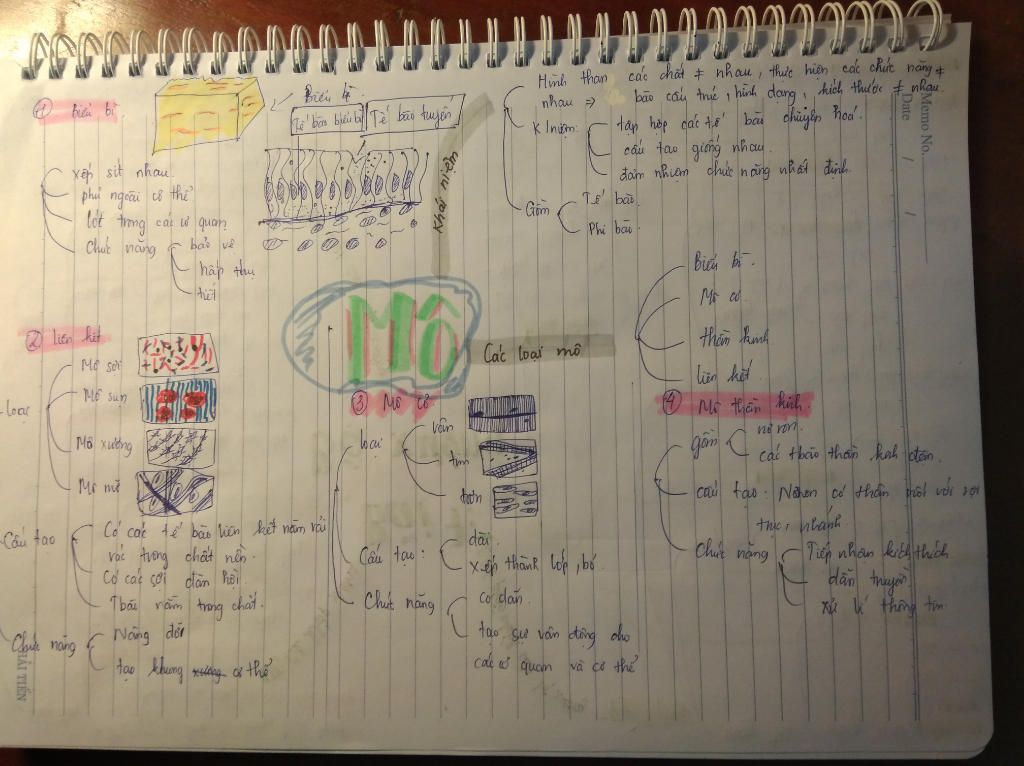 Mô
Khái niệm
Hình thàn các chất ≠ nhau, thực hiện các chức năng ≠
nhau ⇒ bào cấu trúc, hình dạng, kích thước ≠ nhau.
K/niệm:
tập hợp các tế bào chuyên hoá.
cấu tạo giống nhau.
đảm nhiệm chức năng nhất định.
Gồm
Tế bào.
Phi bào.
Các loại mô
Biểu bì.
Mô cơ
thần kinh
liên kết.
① Biểu bì
Tế bào biểu bì
Tế bào tuyến
xếp sít nhau.
phủ ngoài cơ thể
lót trong các cơ quan
Chức năng
bảo vệ
hấp thụ
tiết
② liên kết
loại
Mô sợi
Mô sụn
Mô xương
Mô mỡ
Cấu tạo
Có các tế bào liên kết nằm rải
rác trong chất nền.
Có các sợi đàn hồi.
Tbào nằm trong chất.
Chức năng
Nâng đỡ
tạo khung xương cơ thể
③ Mô cơ
loại
vân
tim
trơn
Cấu tạo:
dài.
xếp thành lớp, bó
Chức năng
co dãn.
tạo sự vận động cho
các cơ quan và cơ thể
④ Mô thần kinh.
gồm
nơron.
các tbào thần kinh đệm.
cấu tạo: Nơron có thân nối với sợi
trục, nhánh
Chức năng
Tiếp nhận kích thích
dẫn truyền
xử lí thông tin
Memo No.
Date / /
HẢI TIẾN